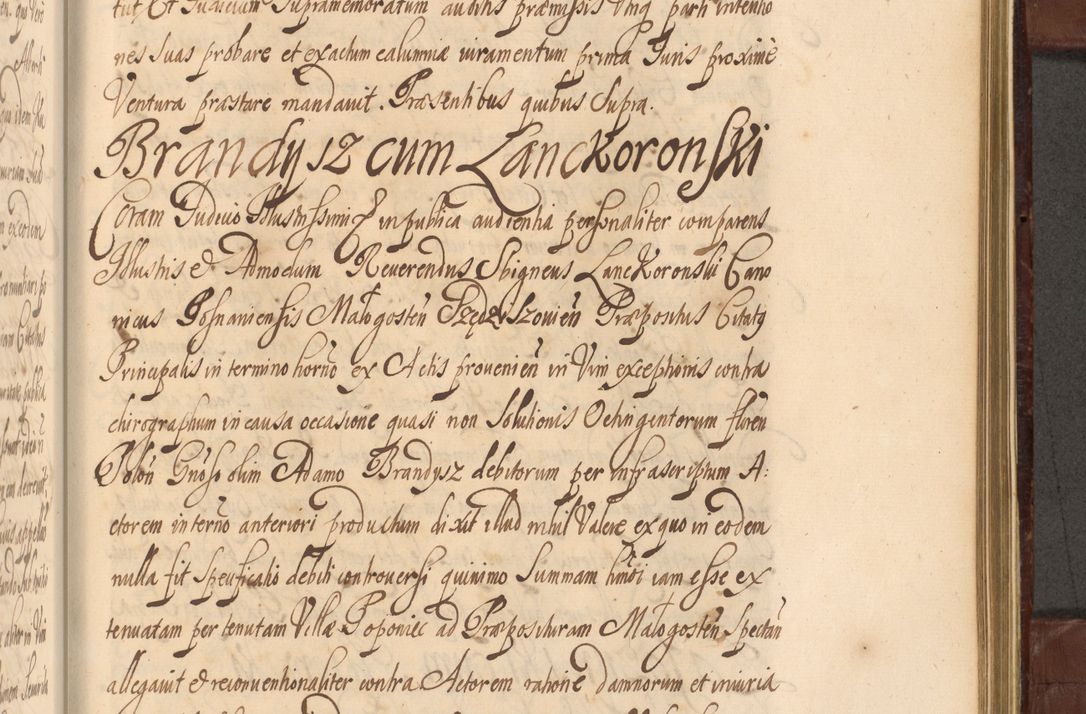 tut, Et Judicium Supramemoratum auditis præmissis Utriq parti intentio
nes Suas probare et exactum calumniæ iuramentum prima Juris proxime
Ventura præstare mandavit. Præsentibus quibus Supra.
Brandysz cum Lanckoronski
Coram Judicio Illustrissimi in publica audientia personaliter comparens
Illustris & Admodum Reverendus Sbigneus Lanckoronski Cano
nicus Posnaniensis Małogosteñ Præpositus Citatq
Principalis in termino horño ex Actis provenieñ in Vim exceptionis contra
chirographum in causa occasione quasi non Solutionis Octingentorum floreñ
Poloñ Gnoso olim Adamo Brandysz debitorum per infrascriptum A:
ctorem in terño anteriori productum dixit illud nihil Valere ex quo in eodem
nulla fit Specificatio debiti controversi quinimo Summam hmõi iam esse ex
tenuatam per tenutam Villæ Poponiec ad Præposituram Małogosteñ Spectañ
allegavit & reconventionaliter contra Actorem ratione damnorum et iniuria